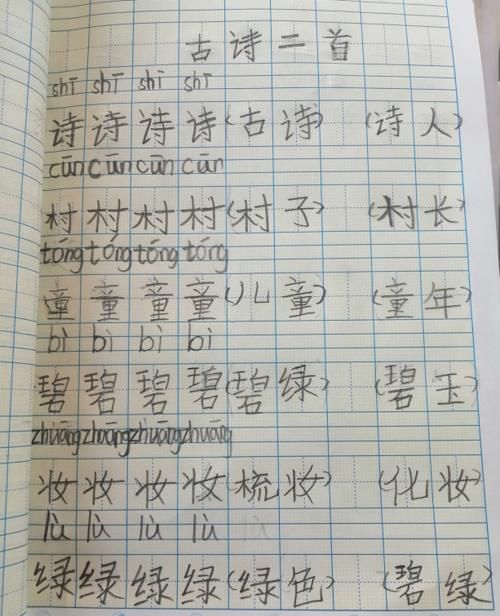 古诗二首
shī shī shī shī
诗诗诗诗(古诗) (诗人)
cūn cūn cūn cūn
村村村村(村子) (村长)
tóng tóng tóng tóng
童童童童(儿童) (童年)
bì bì bì bì
碧碧碧碧(碧绿) (碧玉)
zhuāng zhuāng zhuāng zhuāng
妆妆妆妆(梳妆) (化妆)
lǜ lǜ lǜ lǜ
绿绿绿绿(绿色) (碧绿)